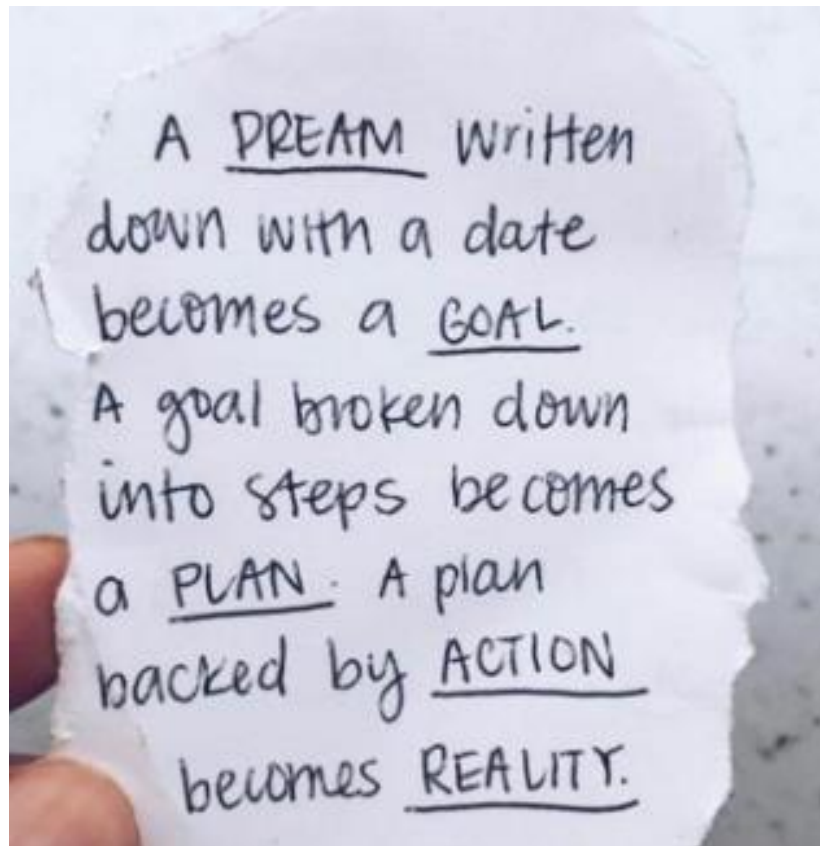 A DREAM written
down with a date
becomes a GOAL.
A goal broken down
into steps becomes
a PLAN. A plan
backed by ACTION
becomes REALITY.